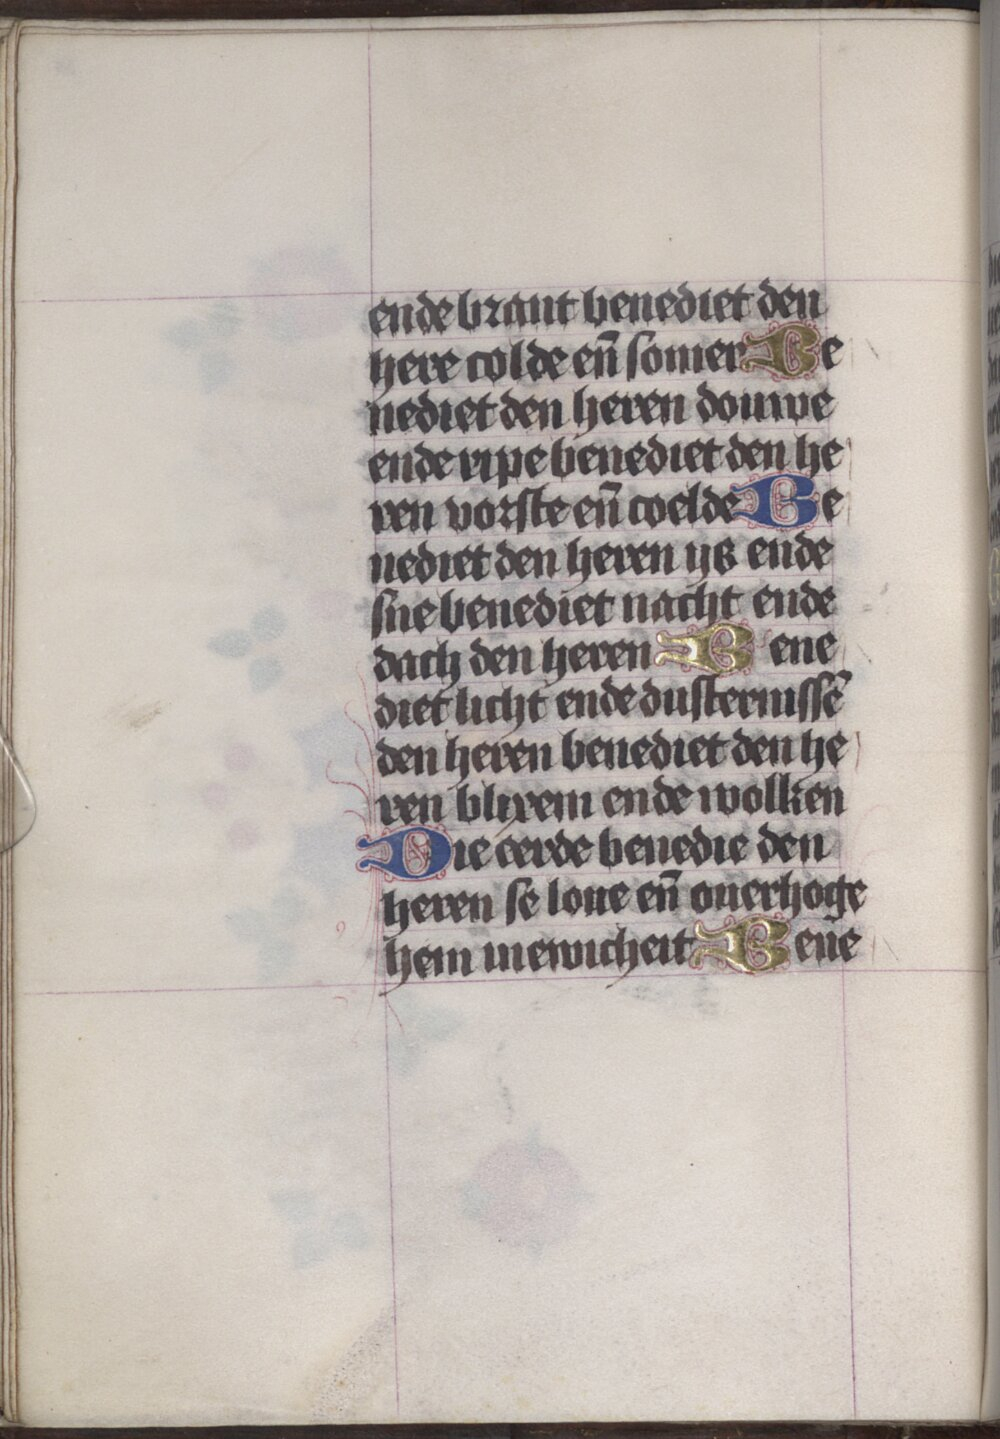 ende brant benediet den
here colde en̄ somer Be
nediet den heren douwe
ende ripe benediet den he
ren vorste en̄ coelde Be
nediet den heren ijs ende
sne benediet nacht ende
dach den heren Bene
diet licht ende dusternissē
den heren benediet den he
ren blixem ende wolken
Die eerde benedie den
heren se loue en̄ ouerhoge
hem in ewicheit Bene